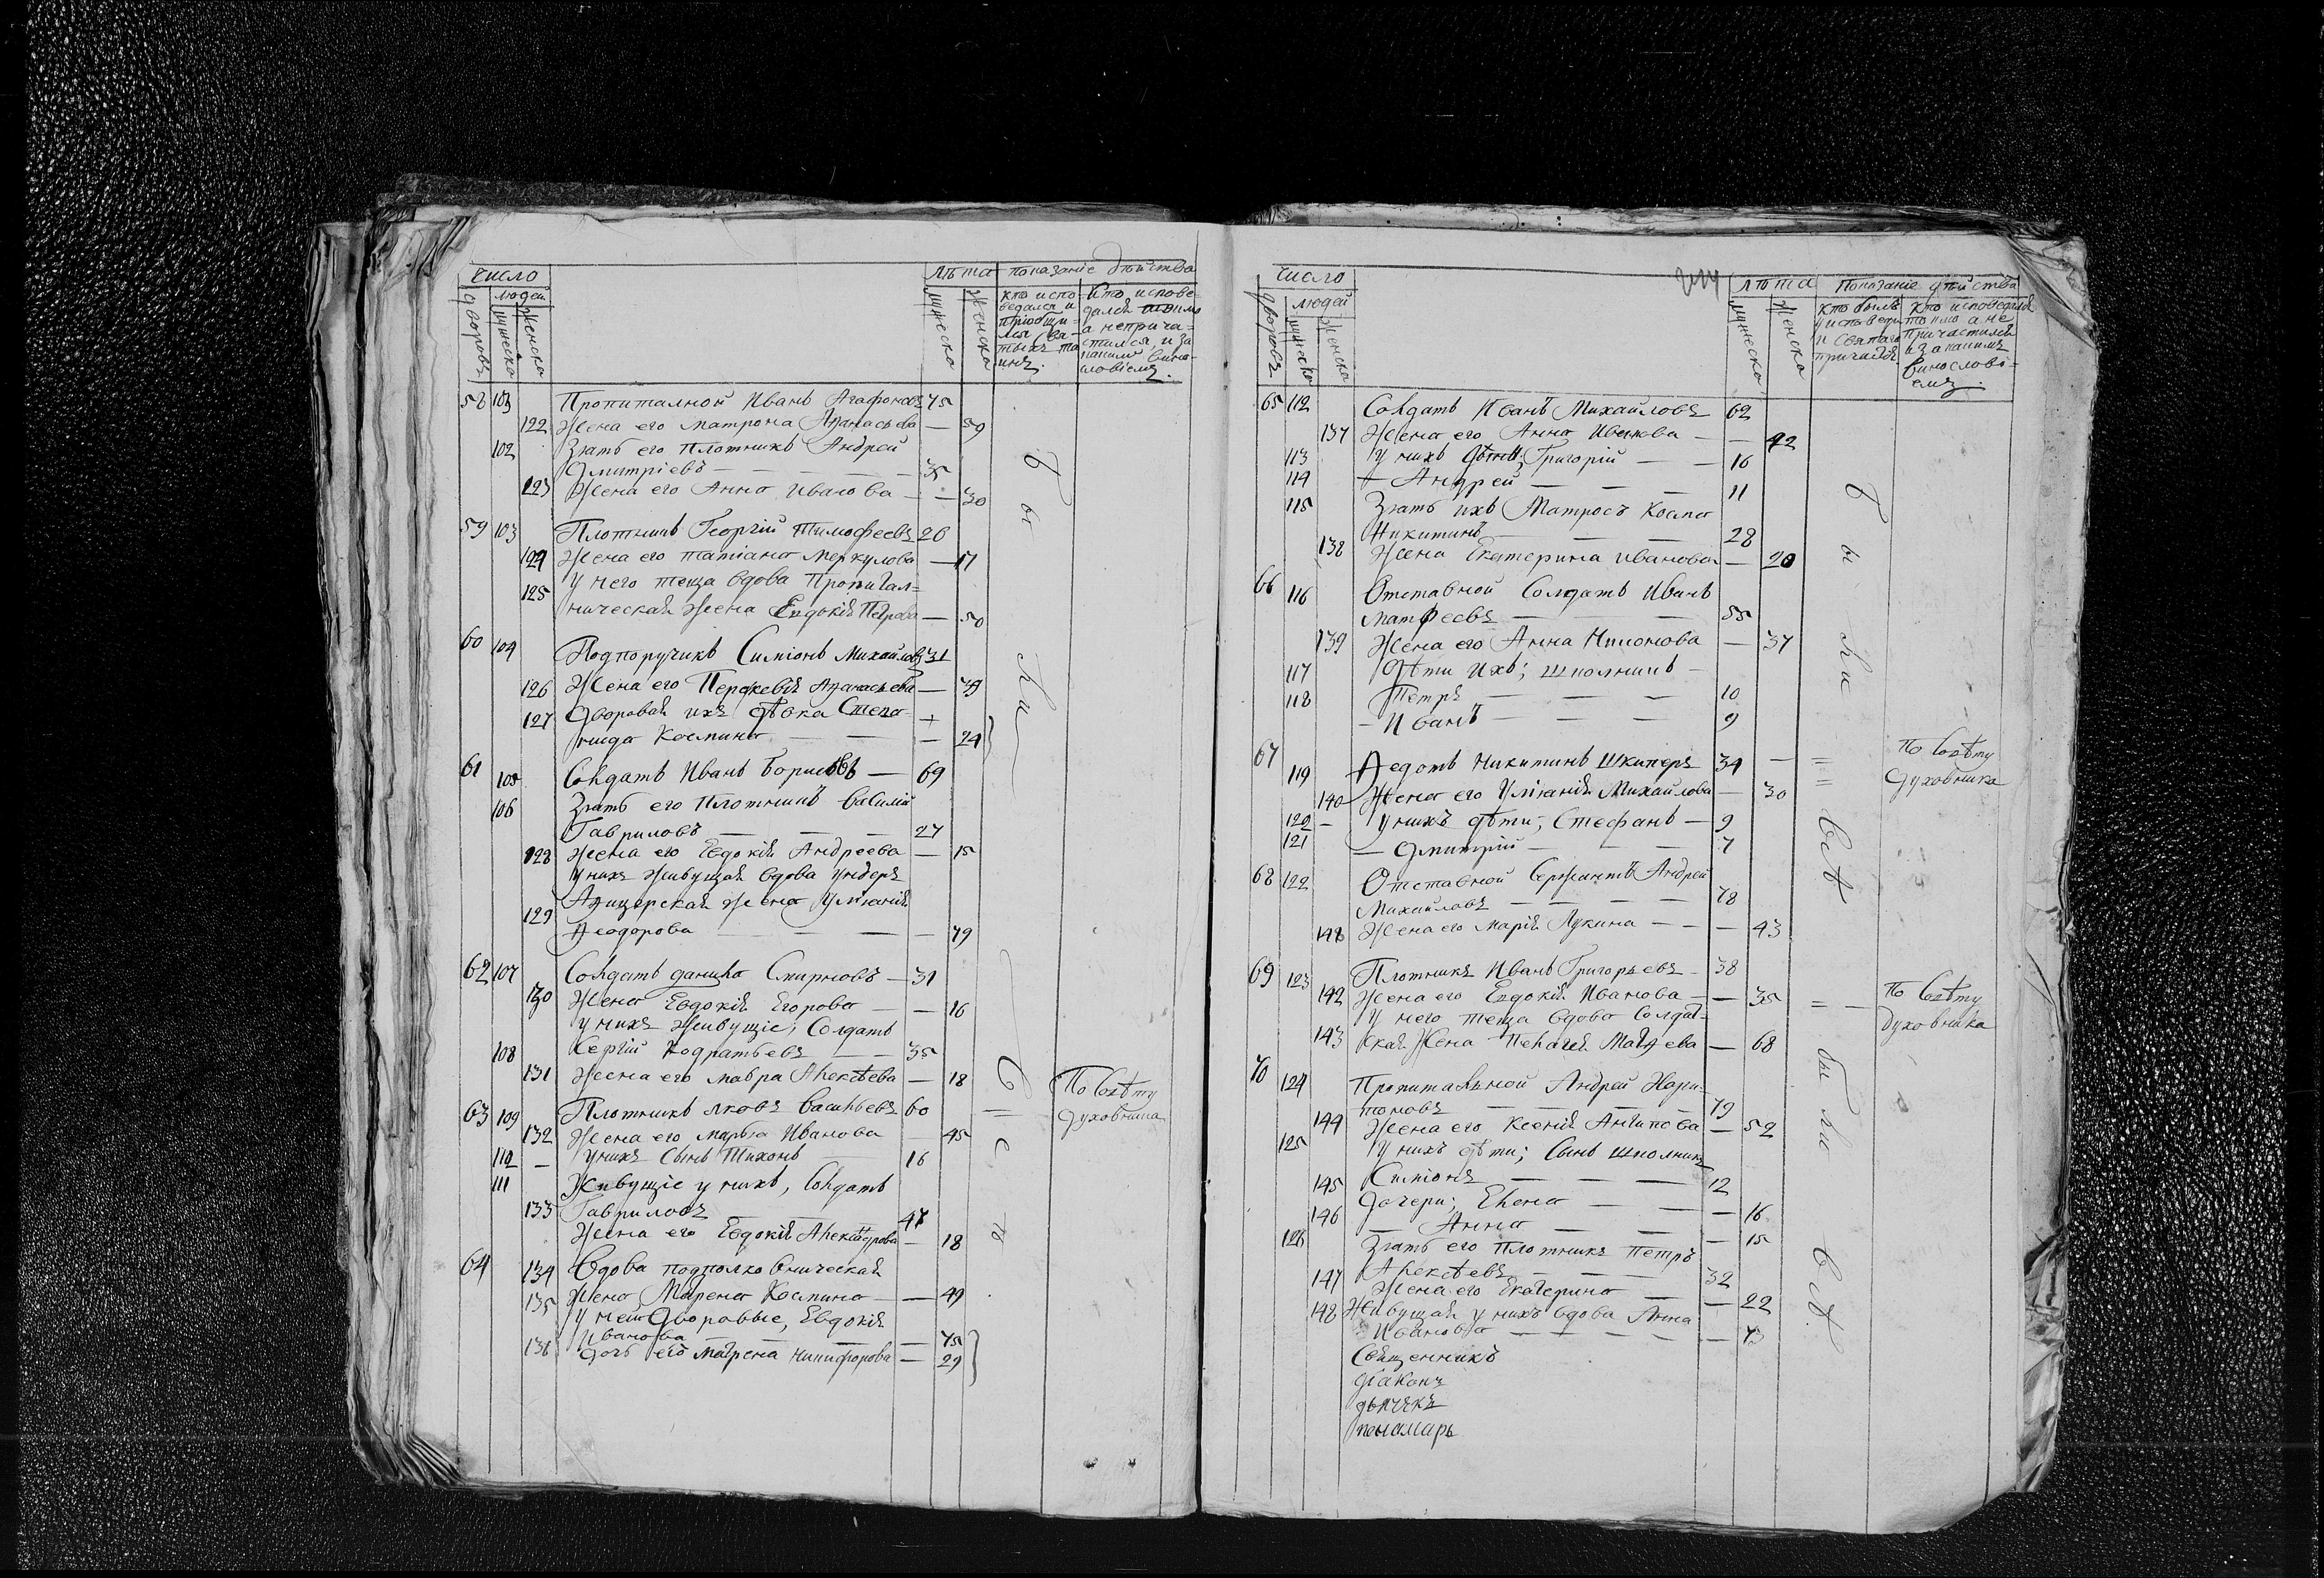 число
лѣта показаніе дѣйства
людей
дворовъ
мужеска
женска
мужеска
женска
кто испо-
ведался и
пріобщи-
лся свя-
тыхъ та
инъ.
Кто испове
дался токмо
а неприча-
стился, и за
каким вино-
словіемъ.
58 103 Пропиталной Иванъ Агафоновъ 75
122 Жена его Матрона Афанасьева — 59
102 Зять его Плотникъ Андрей
Дмитріевъ — — — — 35
123 Жена его Анна Иванова — — 30
59 103 Плотникъ Георгій Тимофеевъ 26
124 Жена его Татіана Меркулова — 17
125 У него теща вдова Пропитал=
ническая жена Евдокія Петрова — 50
60 104 Подпоручикъ Симіонъ Михайловъ 31
126 Жена его Перскевія Афанасьева — 39
127 Дворовая ихъ дѣвка Степа- —
нида Космина — — — 24
61 105 Солдатъ Иванъ Борисовъ — 69
106 Зять его Плотникъ Василій
Гавриловъ — — — 27
128 Жена его Евдокія Андреева — 15
У нихъ живущая вдова ундеръ
129 Афицерская жена Уліанія
Феодорова — — — — 79
62 107 Солдатъ данила Смирновъ — 31
130 Жена Евдокія Егорова — — 16
У нихъ живущіе, Солдатъ
108 Сергій Кодратьевъ — — 35
131 Жена его мавра Алексѣева — 18
63 109 Плотникъ яковъ Васильевъ 60
132 Жена его Марѳа Иванова — 45
По совѣту
духовника
110 — У нихъ Сынъ Тихонъ — 16
111 Живущіе у нихъ, Солдатъ
133 Гавриловъ — — 47
Жена его Евдокія Александрова — 18
64 134 Вдова подполковническая
135 жена Марена Космина — — 49
У ней Дворовые, Евдокія
Иванова — — — — 75
136 Дочь его Матрена никифорова — 29
были
всѣ
число
лѣта Показаніе дѣйства
людей
дворовъ
мужеска
женска
мужеска
женска
кто былъ
у исповеди
и Святаго
причастія
Кто исповедался
токмо а не
Причастился
и за какимъ
винослові-
емъ.
65 112 Солдатъ Иванъ Михайловъ 62
137 Жена его Анна Иванова — — 42
113 У нихъ дѣти, Григорій — — 16
114 — Андрей — — — 11
115 Зять ихъ Матросъ Косма
Никитинъ — — — 28
138 Жена Екатерина иванова — 20
66 116 Отставной Солдатъ Иванъ
матфеевъ — — — 55
139 Жена его Анна Нилонова — 37
117 Дѣти ихъ; школникъ —
118 Петръ — — — 10
— Иванъ — — — 9
67 119 Федотъ Никитинъ Шкиперъ 34 —
По совѣту
духовника
140 Жена его Уліанія Михайлова — 30
120 — У нихъ дѣти; Стефанъ — 9
121 — Дмитрій — — — 7
68 122 Отставной Сержантъ Андрей
Михайловъ — — — — 78
148 Жена его Марія Лукина — — — 43
69 123 Плотникъ Иванъ Григорьевъ — 38
142 Жена его Евдокія Иванова — — 35
По совѣту
духовника
У него теща вдова Солдат-
143 ская жена Пелагея Матфева — 68
70 124 Пропитальной Андрей Хари-
тоновъ — — — — 79
144 Жена его Ксенія Антипова — 52
125 У нихъ дѣти; Сынъ школникъ
145 Симіонъ — — — 12
Дочери; Елена — — — 16
146 — Анна — — — 15
126 Зять его плотникъ петръ
Алексѣевъ — — — 32
147 Жена его Екатерина — — 22
148 Живущая у нихъ вдова Анна
Иванова — — — — — 73
Священникъ
діаконъ
дьячекъ
пономарь
были всѣ
были всѣ.